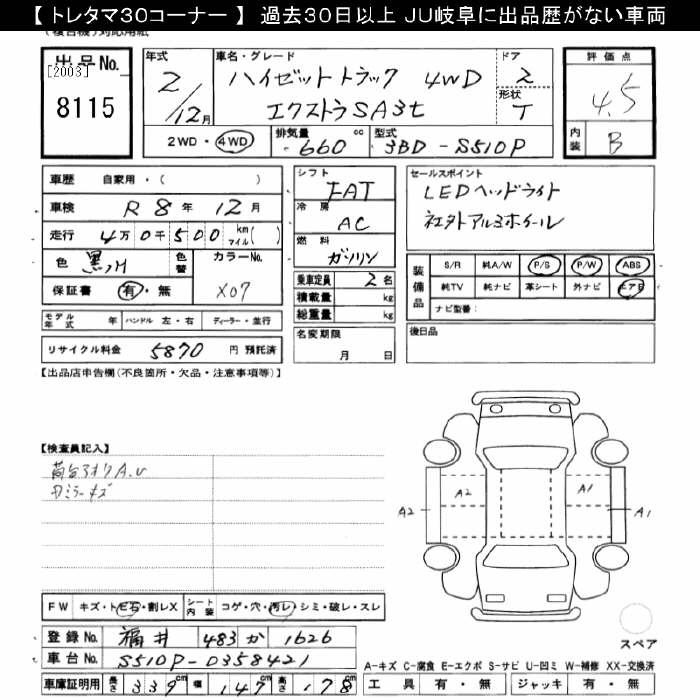 【 トレタマ30コーナー 】 過去30日以上 JU岐阜に出品歴がない車両
(複合機)対応用紙
出品No.
[2003]
8115
年式
2/12月
車名・グレード
ハイゼットトラック 4WD
エクストラSA3t
ドア
2
形状
T
2WD・4WD
排気量
660 cc
型式
3BD-S510P
評価点
4.5
内装
B
車歴 自家用・( )
車検 R 8 年 12 月
走行 4万0千500 km マイル( )
色 黒M
色替
カラーNo.
X07
保証書 有・無
モデル年式 年 ハンドル 左・右 ディーラー・並行
リサイクル料金 5870 円 預託済
シフト
FAT
冷房
AC
燃料
ガソリン
乗車定員 2 名
積載量 kg
総重量 kg
名変期限
月 日
セールスポイント
LEDヘッドライト
社外アルミホイール
装備品
S/R 純A/W P/S P/W ABS
純TV 純ナビ 革シート 外ナビ エアB
ナビ型番:
後日品
【出品店申告欄(不良箇所・欠品・注意事項等)】
【検査員記入】
荷台アオリA.U
ミラーキズ
A2 A2 A1 A1
FW キズ・ト 石・割レX
シート内装 コゲ・穴・汚レ・シミ・破レ・スレ
登録No. 福井 483 か 1626
車台No. S510P-0358421
車庫証明用 長さ 339 cm 幅 147 cm 高さ 178 cm
スペア
A-キズ C-腐食 E-エクボ S-サビ U-凹ミ W-補修 XX-交換済
工具 有・無 ジャッキ 有・無